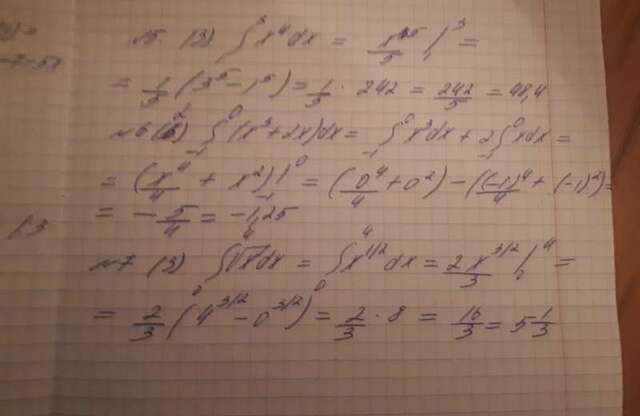 №5. (3) ∫₁³ x⁴dx = x⁵/5 |₁³ =
= 1/5 (3⁵ - 1⁵) = 1/5 · 242 = 242/5 = 48,4
№6 (2) ∫₋₁⁰ (x³+2x)dx = ∫₋₁⁰ x³dx + 2∫₋₁⁰ xdx =
= (x⁴/4 + x²)|₋₁⁰ = (0⁴/4 + 0²) - ((-1)⁴/4 + (-1)²) =
= - 5/4 = -1,25
№7 (3) ∫₀⁴ √x dx = ∫₀⁴ x^(1/2) dx = 2x^(3/2)/3 |₀⁴ =
= 2/3 (4^(3/2) - 0^(3/2)) = 2/3 · 8 = 16/3 = 5 1/3